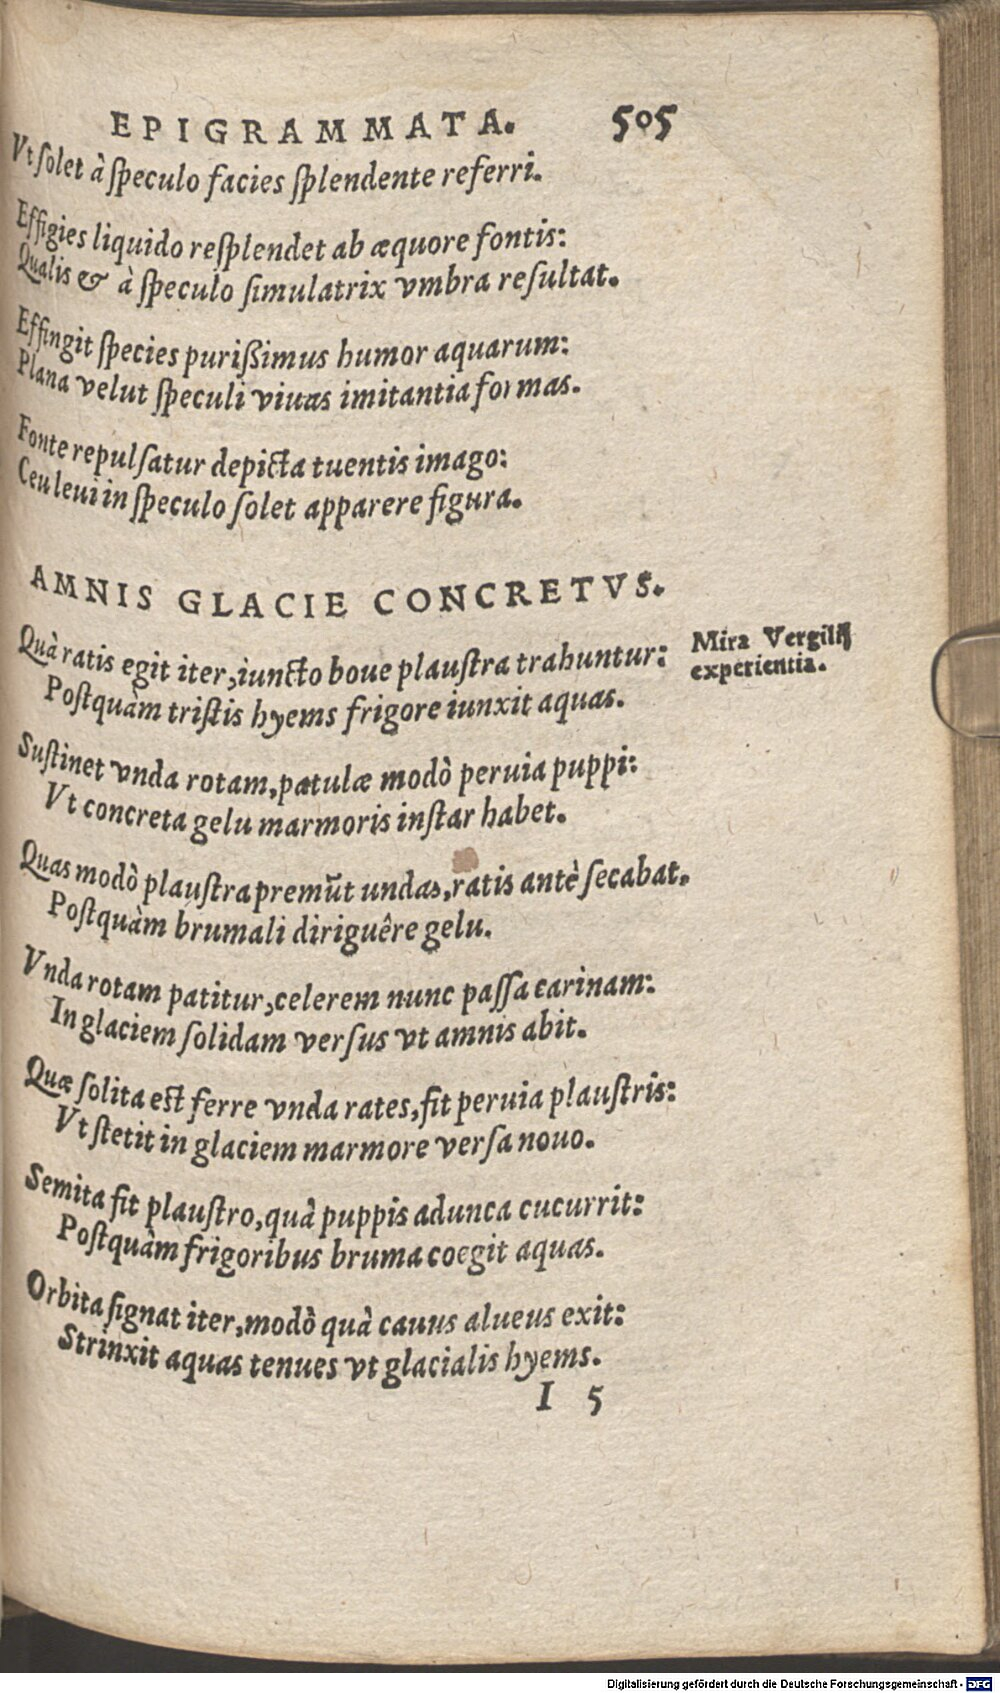 EPIGRAMMATA. 505
Vt ſolet à ſpeculo facies ſplendente referri.
Effigies liquido reſplendet ab æquore fontis:
Qualis & à ſpeculo ſimulatrix vmbra reſultat.
Effingit ſpecies purißimus humor aquarum:
Plana velut ſpeculi viuas imitantia formas.
Fonte repulſatur depicta tuentis imago:
Ceu leui in ſpeculo ſolet apparere figura.
AMNIS GLACIE CONCRETVS.
Quà ratis egit iter, iuncto boue plauſtra trahuntur:
Poſtquàm triſtis hyems frigore iunxit aquas.
Mira Vergilij
experientia.
Suſtinet vnda rotam, patulæ modò peruia puppi:
Vt concreta gelu marmoris inſtar habet.
Quas modò plauſtra premūt undas, ratis antè ſecabat.
Poſtquàm brumali diriguêre gelu.
Vnda rotam patitur, celerem nunc paſſa carinam:
In glaciem ſolidam verſus vt amnis abit.
Quæ ſolita eſt ferre vnda rates, fit peruia plauſtris:
Vt ſtetit in glaciem marmore verſa nouo.
Semita fit plauſtro, quà puppis adunca cucurrit:
Poſtquàm frigoribus bruma coegit aquas.
Orbita ſignat iter, modò quà cauus alueus exit:
Strinxit aquas tenues vt glacialis hyems.
I 5
Digitalisierung gefördert durch die Deutsche Forschungsgemeinschaft - DFG